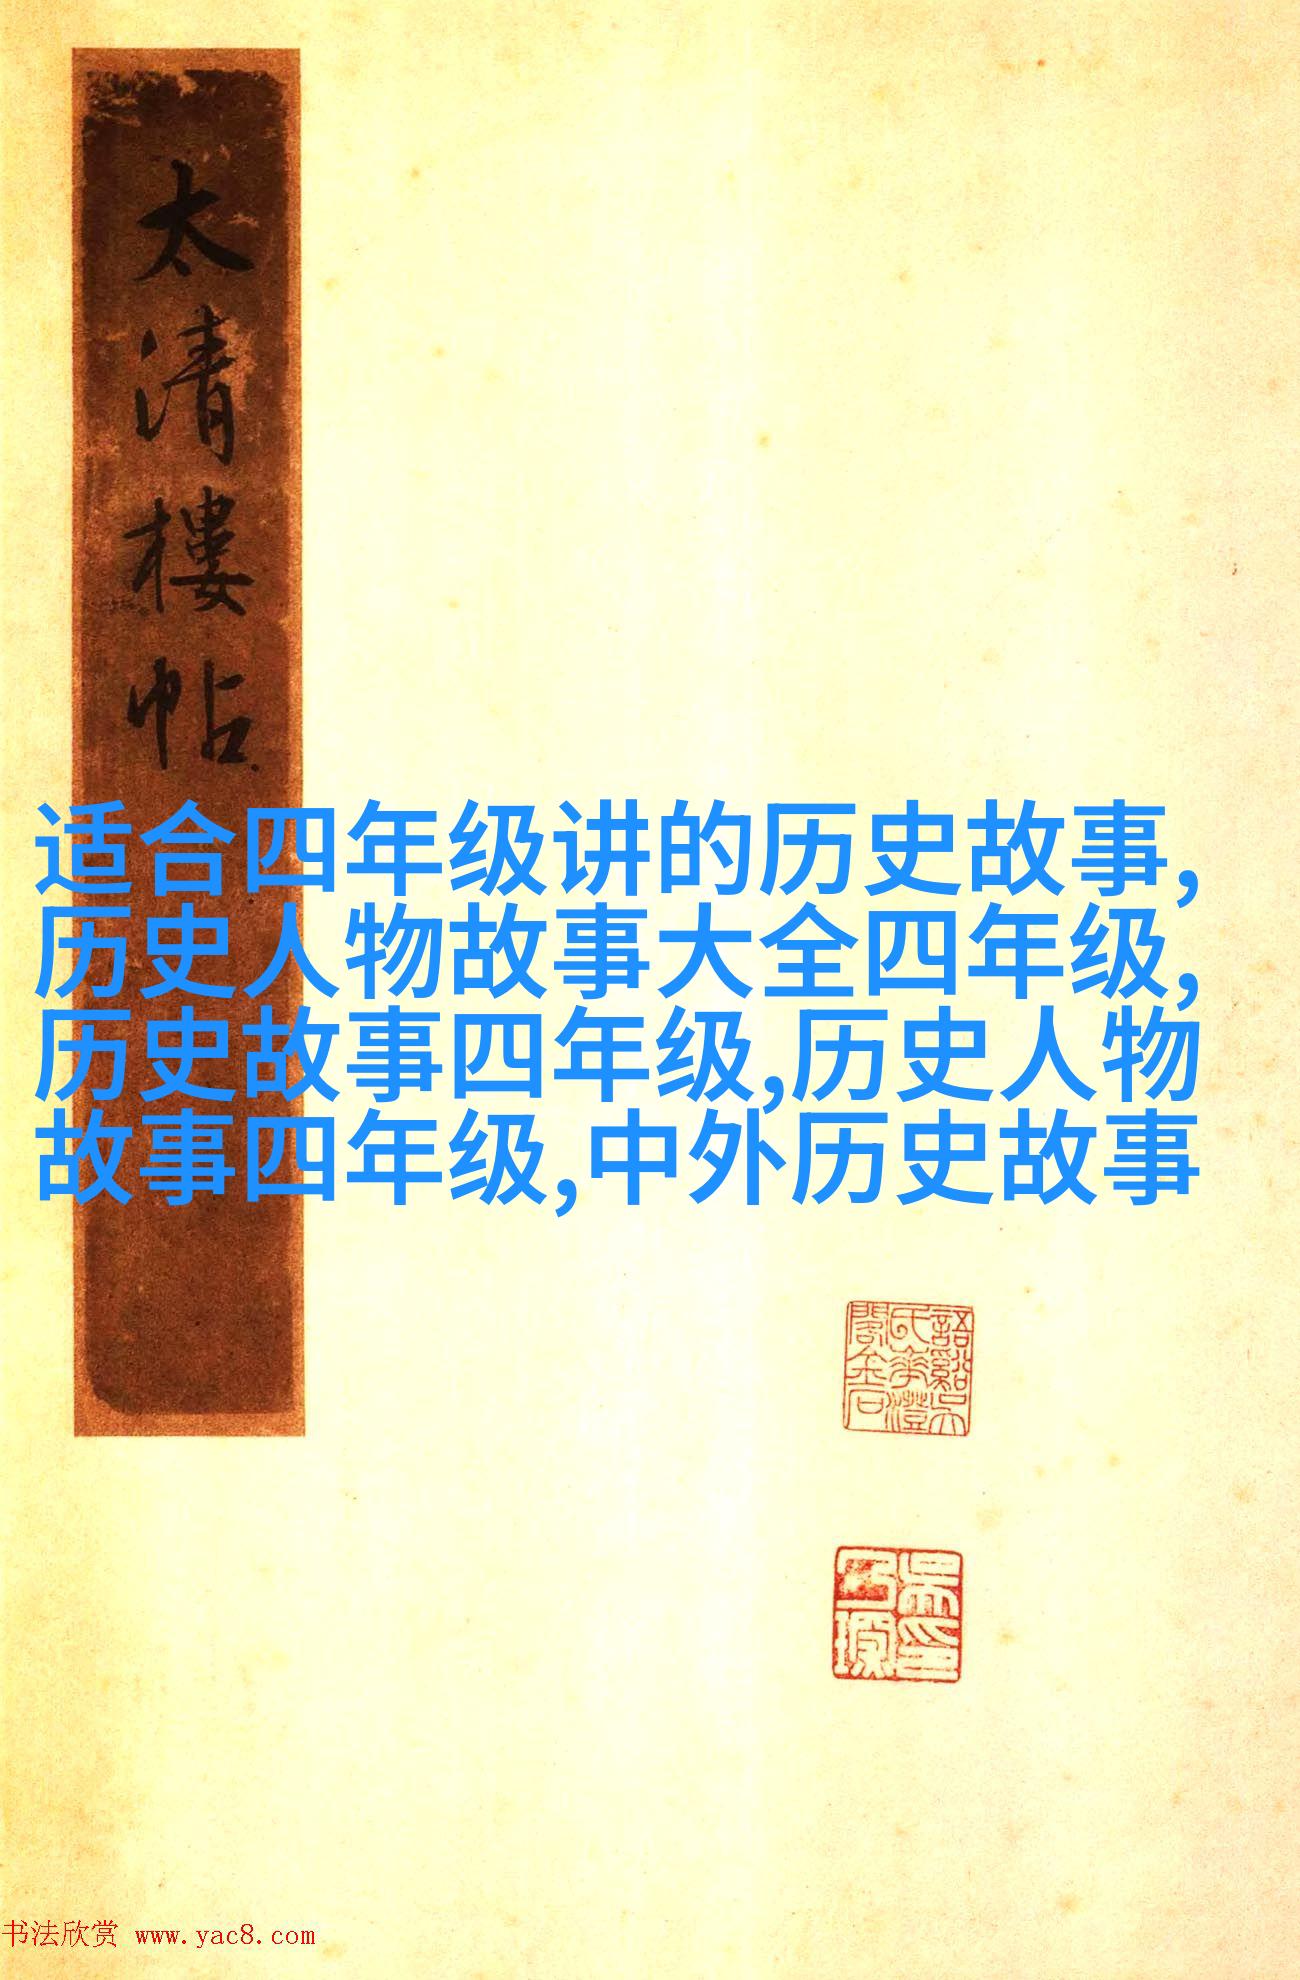 太清樓帖
适合四年级讲的历史故事,
历史人物故事大全四年级,
历史故事四年级,历史人物
故事四年级,中外历史故事
书法欣赏 www.yac8.com